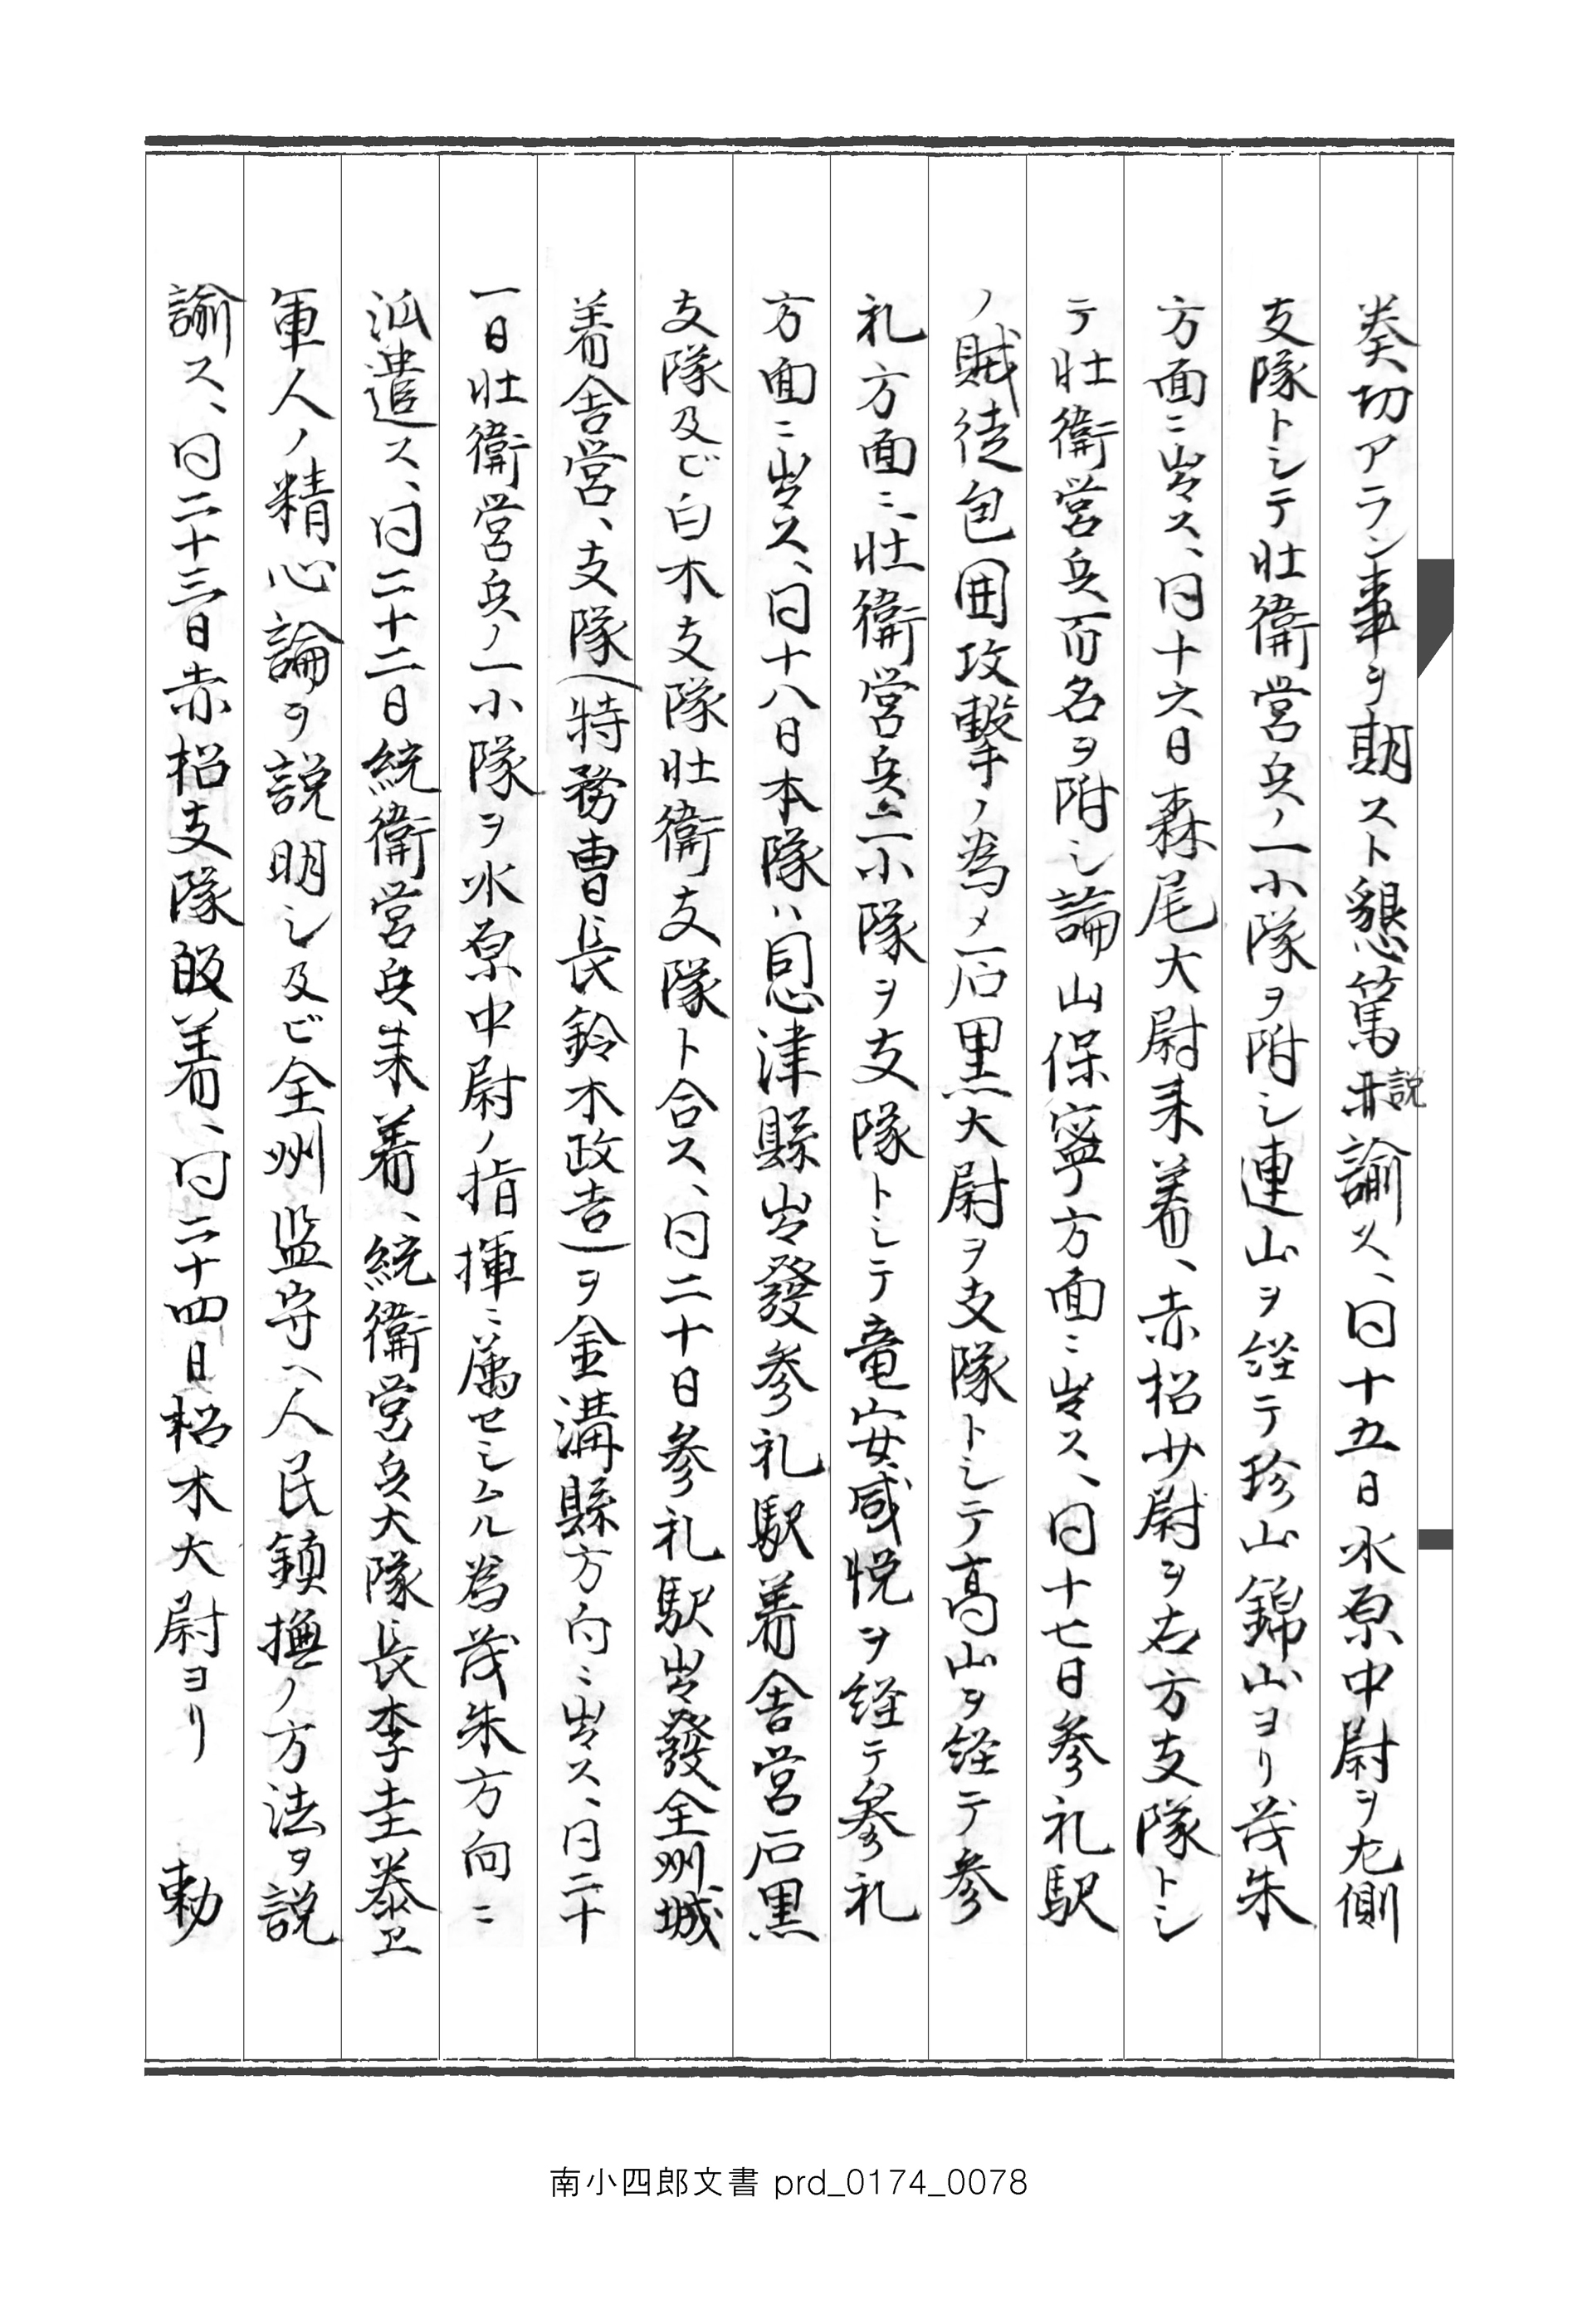 奏切アラン事ヲ期スト懇篤説諭ス、同十五日水原中尉ヲ左側
支隊トシテ壮衛営兵ノ一小隊ヲ附シ連山ヲ経テ珍山錦山ヨリ茂朱
方面ニ出ス、同十六日森尾大尉来着、赤松少尉ヲ右方支隊トシ
テ壮衛営兵百名ヲ附シ論山保寧方面ニ出ス、同十七日参礼駅
ノ賊徒包囲攻撃ノ為メ石黒大尉ヲ支隊トシテ高山ヲ経テ参
礼方面ニ壮衛営兵二小隊ヲ支隊トシテ竜安咸悦ヲ経テ参礼
方面ニ出ス、同十八日本隊ハ恩津縣出發参礼駅着舎営石黒
支隊及ビ白木支隊壮衛支隊ト合ス、同二十日参礼駅出發全州城
着舎営、支隊(特務曹長鈴木政吉)ヲ金溝縣方向ニ出ス、同二十
一日壮衛営兵ノ一小隊ヲ水原中尉ノ指揮ニ属セシムル為茂朱方向ニ
派遣ス、同二十二日統衛営兵来着、統衛営兵大隊長李圭泰ヱ
軍人ノ精心論ヲ説明シ及ビ全州監守ヘ人民鎮撫ノ方法ヲ説
諭ス、同二十三日赤松支隊皈着、同二十四日松木大尉ヨリ 勅
南小四郎文書 prd_0174_0078